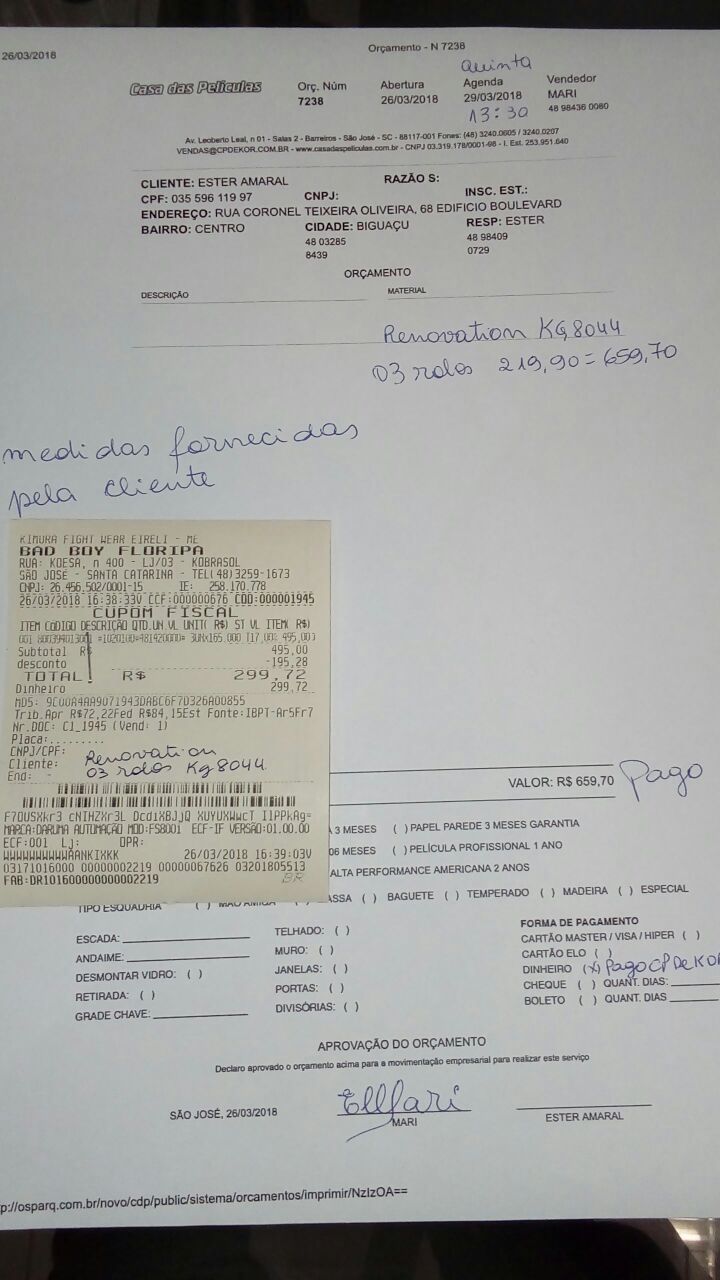 26/03/2018
Orçamento - N 7238
Casa das Películas
Orç. Núm
7238
Abertura
26/03/2018
Quinta
Agenda
29/03/2018
13:30
Vendedor
MARI
48 98436 0060
Av. Leoberto Leal, n 01 - Salas 2 - Barreiros - São José - SC - 88117-001 Fones: (48) 3240.0605 / 3240.0207
VENDAS@CPDEKOR.COM.BR - www.casadaspeliculas.com.br - CNPJ 03.319.178/0001-98 - I. Est. 253.951.640
CLIENTE: ESTER AMARAL RAZÃO S:
CPF: 035 596 119 97 CNPJ: INSC. EST.:
ENDEREÇO: RUA CORONEL TEIXEIRA OLIVEIRA, 68 EDIFICIO BOULEVARD
BAIRRO: CENTRO CIDADE: BIGUAÇU RESP: ESTER
48 03285 48 98409
8439 0729
ORÇAMENTO
DESCRIÇÃO MATERIAL
Renovation KG8044
03 rolos 219,90 = 659,70
medidas fornecidas
pela cliente
KIMURA FIGHT WEAR EIRELI - ME
BAD BOY FLORIPA
RUA: KOESA, n 400 - LJ/03 - KOBRASOL
SÃO JOSÉ - SANTA CATARINA - TEL(48)3259-1673
CNPJ: 26.456.502/0001-15 IE: 258.170.778
26/03/2018 16:38:33V CCF:000000676 COO:000001945
CUPOM FISCAL
ITEM CÓDIGO DESCRIÇÃO QTD.UN.VL UNIT( R$) ST VL ITEM( R$)
Subtotal R$ 495,00
desconto -195,28
TOTAL R$ 299,72
Dinheiro 299,72
MD5: 9C00A4AA9071943DABC6F7D326A00855
Trib.Apr R$72,22Fed R$84,15Est Fonte:IBPT-Ar5Fr7
Nr.DOC: C1_1945 (Vend: 1)
Placa:.........
CNPJ/CPF:
Cliente: Renovation
End: - 03 rolos Kg8044
F70USXkr3 cNIHZXr3L DcdiXBJjQ XUYUXWwcT I1PPkAg=
MARCA:DARUMA AUTOMAÇÃO MOD:FS800i ECF-IF VERSÃO:01.00.00
ECF:001 Lj: OPR:
WWWWWWWWWAANKIXKK 26/03/2018 16:39:03V
03171016000 00000002219 00000067626 03201805513
FAB:DR101600000000002219 BR
VALOR: R$ 659,70 Pago
3 MESES ( ) PAPEL PAREDE 3 MESES GARANTIA
06 MESES ( ) PELÍCULA PROFISSIONAL 1 ANO
ALTA PERFORMANCE AMERICANA 2 ANOS
TIPO ESQUADRIA ( ) MÃO AMIGA ( ) ASSA ( ) BAGUETE ( ) TEMPERADO ( ) MADEIRA ( ) ESPECIAL
ESCADA:
ANDAIME:
DESMONTAR VIDRO: ( )
RETIRADA: ( )
GRADE CHAVE:
TELHADO: ( )
MURO: ( )
JANELAS: ( )
PORTAS: ( )
DIVISÓRIAS: ( )
FORMA DE PAGAMENTO
CARTÃO MASTER / VISA / HIPER ( )
CARTÃO ELO ( )
DINHEIRO (x) Pago CP DeKOR
CHEQUE ( ) QUANT. DIAS:
BOLETO ( ) QUANT. DIAS
APROVAÇÃO DO ORÇAMENTO
Declaro aprovado o orçamento acima para a movimentação empresarial para realizar este serviço
SÃO JOSÉ, 26/03/2018
MARI
ESTER AMARAL
p://osparq.com.br/novo/cdp/public/sistema/orcamentos/imprimir/NzIzOA==